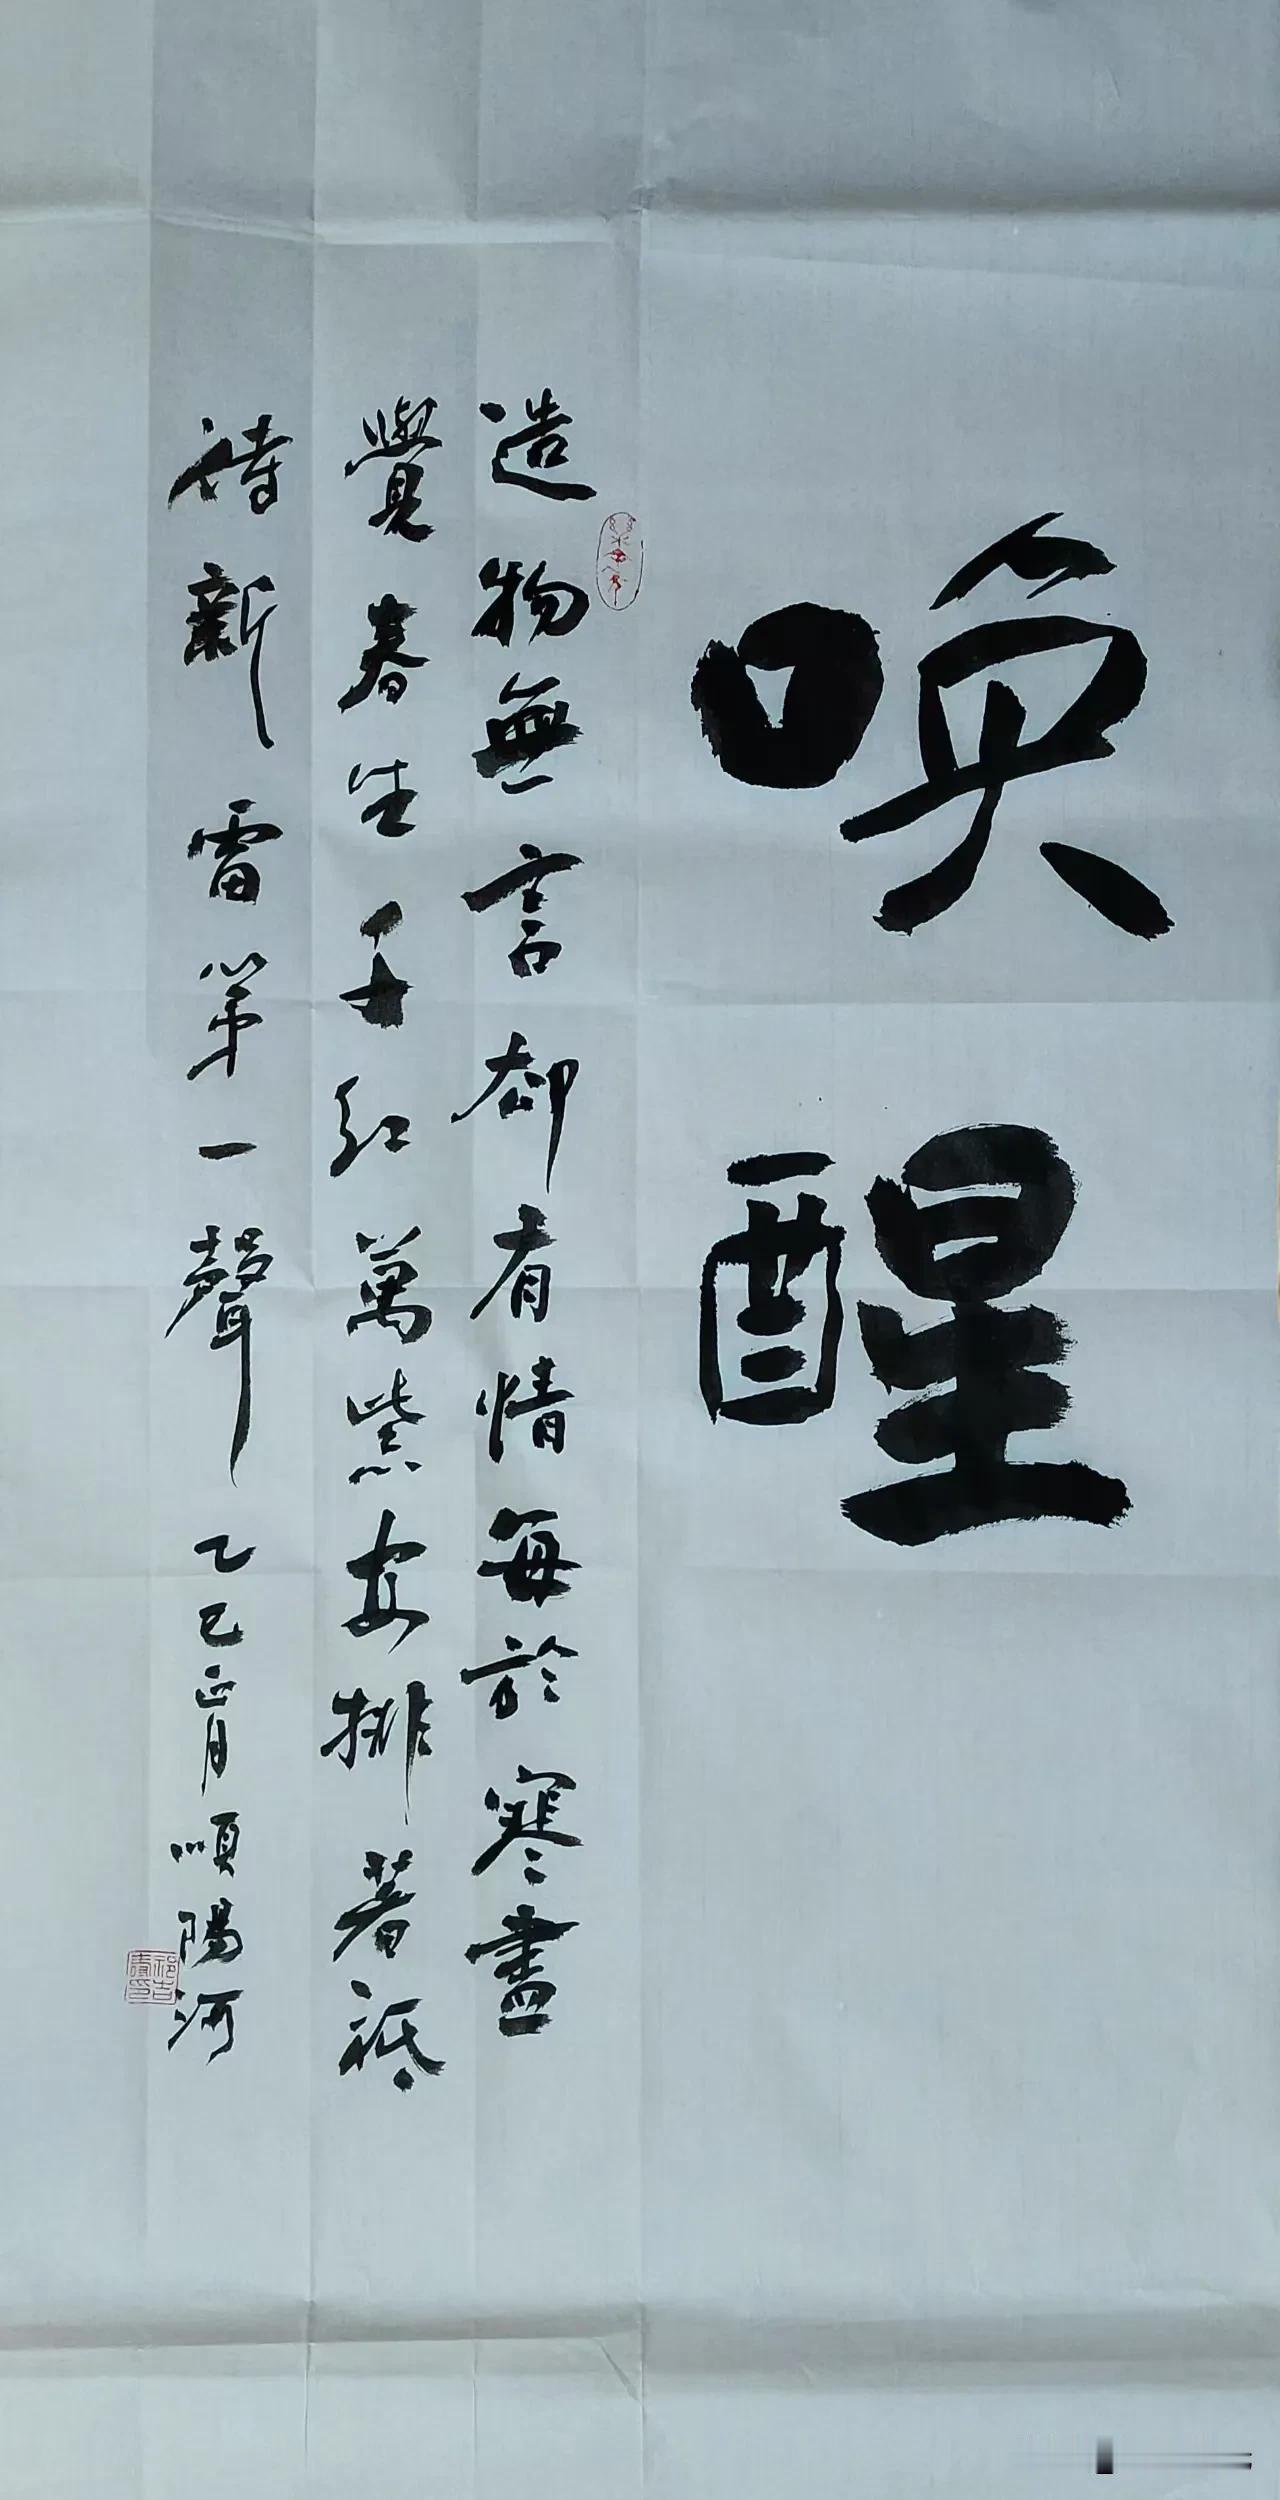 喚醒
造物無言却有情每於寒盡
覺春生千紅萬紫安排著祗
待新雷第一聲 乙巳正月順陽河